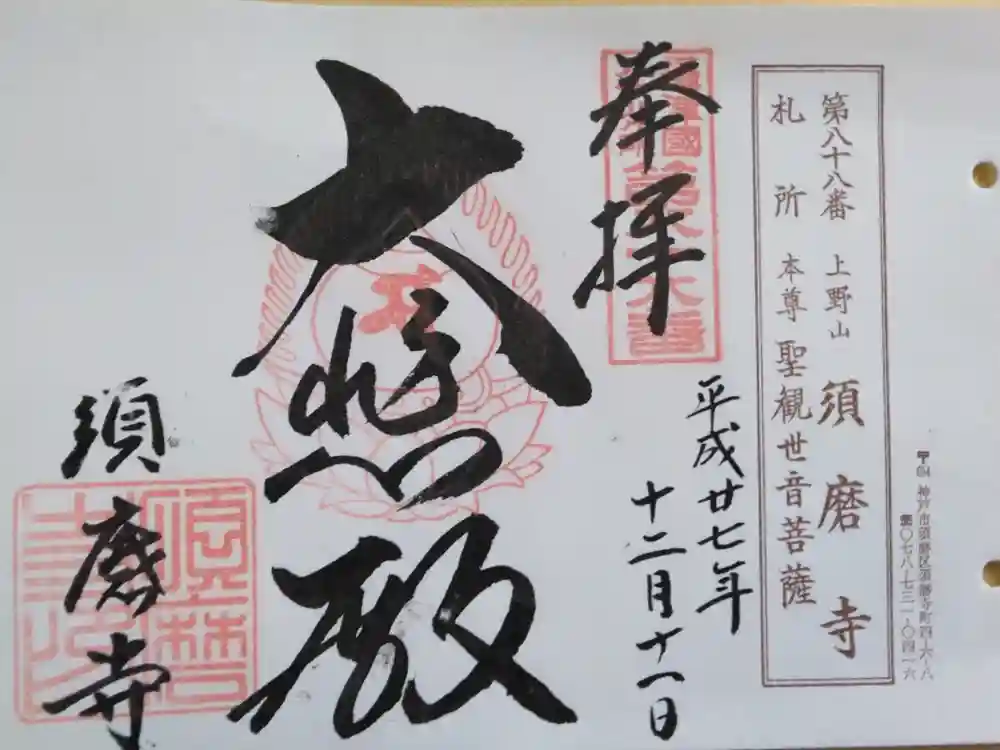 〒654 神戸市須磨区須磨寺町四-六-八
☎〇七八-七三一-〇四一六
第八十八番 上野山 須磨寺
札所 本尊 聖観世音菩薩
奉拝
平成廿七年
十二月十一日
大悲殿
須磨寺
須磨